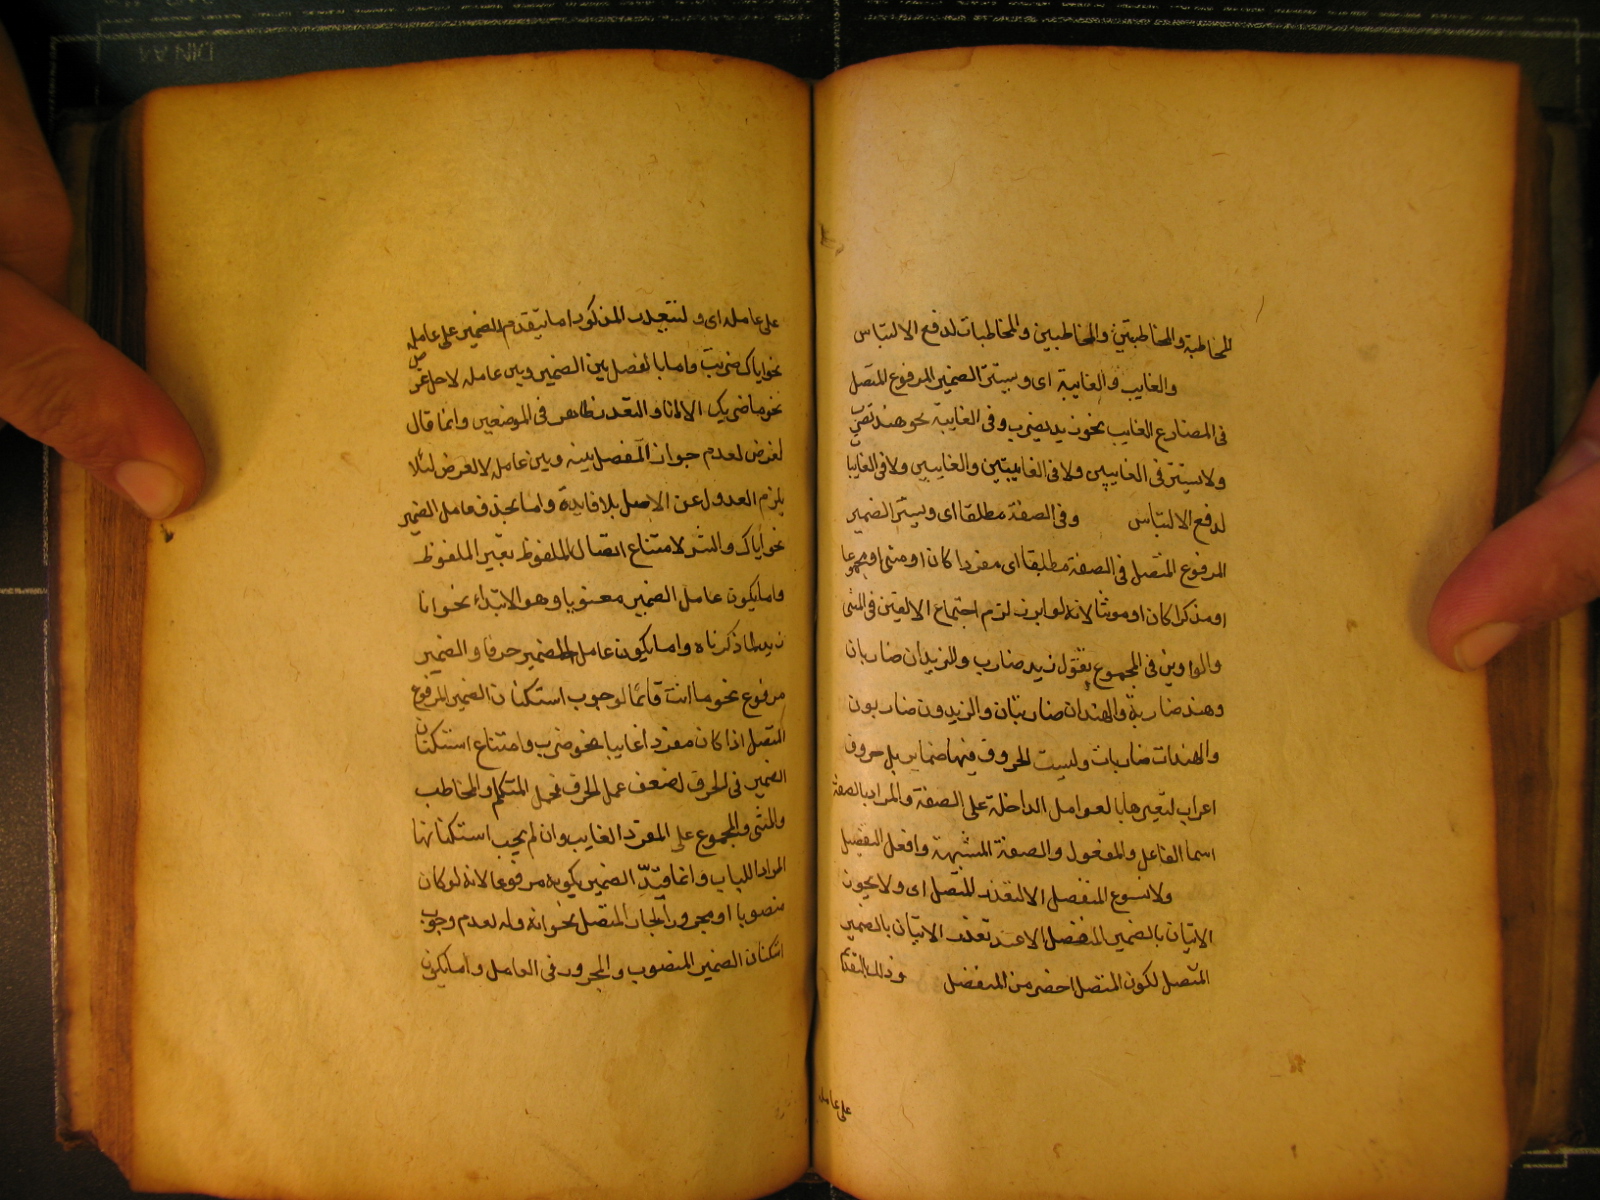 المخاطبة والمخاطبتين والمخاطبين والمخاطبات لدفع الالتباس
والغايب والغايبة اى ويستتر الضمير المرفوع المتصل
فى المضارع الغايب نحو زيد يضرب وفى الغايبة نحو هند تضرب
ولا يستتر فى الغايبين ولا فى الغايبتين والغايبين ولا فى الغايبا
لدفع الالتباس وفى الصفة مطلقا اى ويستتر الضمير
المرفوع المتصل فى الصفة مطلقا اى مفردا كان او مثنى او مجموعا
او مذكرا كان او مونثا لانه لو ابرز لزم اجتماع الالفين فى المثنى
والواوين فى المجموع تقول زيد ضارب والزيدان ضاربان
وهند ضاربة والهندان ضاربتان والزيدون ضاربون
والهندات ضاربات وليست الحروف فيها ضماير بل حروف
اعراب لتغيرها بالعوامل الداخلة على الصفة والمراد بالصفة
اسما الفاعل والمفعول والصفة المشبهة وافعل التفضيل
ولا يسوغ المنفصل الا لتعذر المتصل اى ولا يجوز
الاتيان بالضمير المنفصل الا عند تعذر الاتيان بالضمير
المتصل لكون المتصل اخصر من المنفصل وذلك بالتقدم
على عامله
على عامله اى والتعذر المذكور اما بتقدم الضمير على عامله
نحو اياك ضربت واما بالفصل بين الضمير وبين عامله لاجل غرض
نحو ما ضربك الا انا والتعذر ظاهر فى الموضعين وانما قال
لغرض لعدم جواز الفصل بينه وبين عامله لا لغرض لئلا
يلزم العدول عن الاصل بلا فايدة واما بحذف عامل الضمير
نحو اياك والشر لامتناع اتصال الملفوظ بغير الملفوظ
واما بكون عامل الضمير معنويا وهو الابتداء نحو انا
زيد لما ذكرناه واما بكون عامل الضمير حرفا والضمير
مرفوع نحو ما انت قائما لوجوب استكنان الضمير المرفوع
المتصل اذا كان مفردا غايبا نحو ضرب وامتناع استكنان
الضمير فى الحرف لضعف عمل الحرف فحمل المتكلم والمخاطب
والمثنى والمجموع على المفرد الغايب وان لم يجب استكنانها
اطرادا للباب وانما قيد الضمير بكونه مرفوعا لانه لو كان
منصوبا او مجرورا لجاز المتصل نحو انه وله لعدم وجوب
استكنان الضمير المنصوب والمجرور فى العامل واما بكون